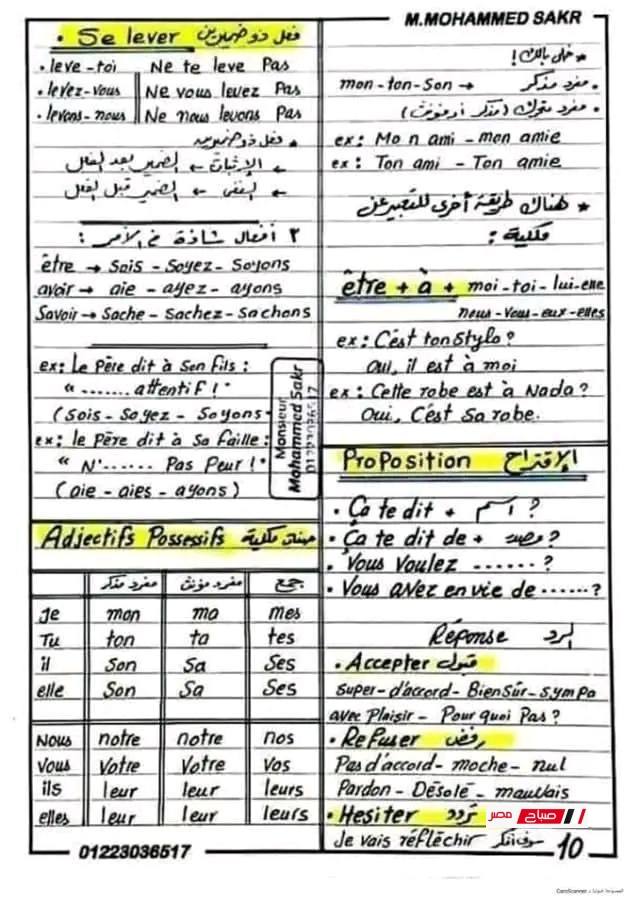 M.MOHAMMED SAKR
• Se lever فعل ذو ضميرين
• leve-toi Ne te leve Pas
• levez-vous Ne vous levez Pas
• levons-nous Ne nous levons Pas
* فعل ذو ضميرين
← الإثبات ← الضمير بعد الفعل
← النفى ← الضمير قبل الفعل
٣ أفعال شاذة فى الأمر :
être → Sois - Soyez - Soyons
avoir → aie - ayez - ayons
Savoir → Sache - Sachez - Sachons
ex: Le Père dit à Son fils :
" ....... attentif ! "
(Sois - Soyez - Soyons)
ex: le Père dit à Sa faille :
" N'...... Pas Peur ! "
(aie - aies - ayons)
Monsieur
Mohammed Sakr
01223036517
Adjectifs Possessifs صفات ملكية
مفرد مذكر مفرد مؤنث جمع
Je mon ma mes
Tu ton ta tes
il Son Sa Ses
elle Son Sa Ses
Nous notre notre nos
Vous Votre Votre Vos
ils leur leur leurs
elles leur leur leurs
01223036517
* خلى بالك !
• مفرد مذكر mon-ton-Son →
• مفرد متحرك (مذكر أو مؤنث)
ex: Mon ami - mon amie
ex: Ton ami - Ton amie
* هناك طريقة أخرى للتعبير عن
ملكية :
être + à + moi-toi-lui-elle
nous-vous-eux-elles
ex: C'est ton Stylo ?
Oui, il est à moi
ex: Cette robe est à Nada ?
Oui, C'est Sa robe.
ProPosition الإقتراح
• Ça te dit + اسم ?
• Ça te dit de + مصدر ?
• Vous Voulez ....... ?
• Vous avez envie de ...... ?
Réponse الرد
• Accepter قبول
super-d'accord-Bien Sûr-sympa
avec Plaisir - Pourquoi Pas ?
• Refuser رفض
Pas d'accord - moche - nul
Pardon - Désolé - mauvais
• Hesiter تردد
صباح مصر
Je vais réfléchir سوف أفكر
10
CamScanner